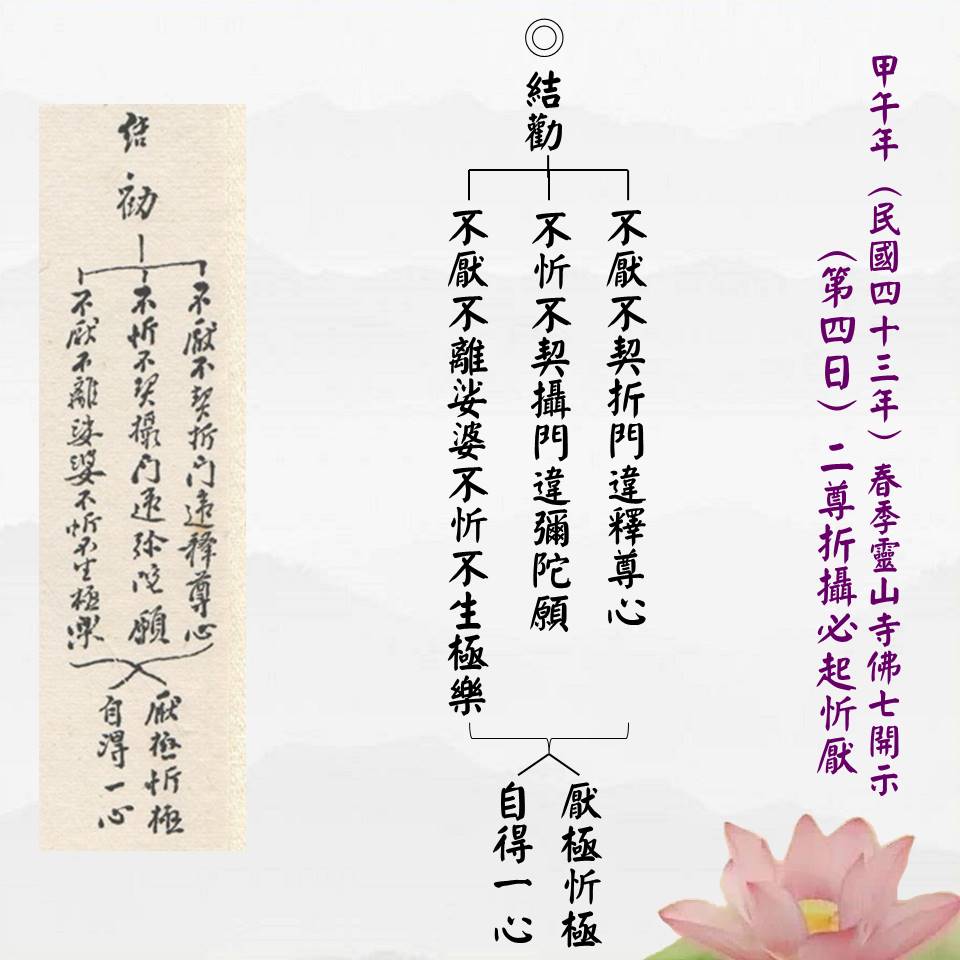 甲午年（民國四十三年）春季靈山寺佛七開示
（第四日）二尊折攝必起忻厭
◎
結勸
不厭不契折門違釋尊心
不忻不契攝門違彌陀願
不厭不離娑婆不忻不生極樂
厭極忻極
自得一心
结劝
不厭不契折门违釋尊心
不忻不契攝门违弥陀願
不厭不離娑婆不忻不生極樂
厭極忻極
自得一心